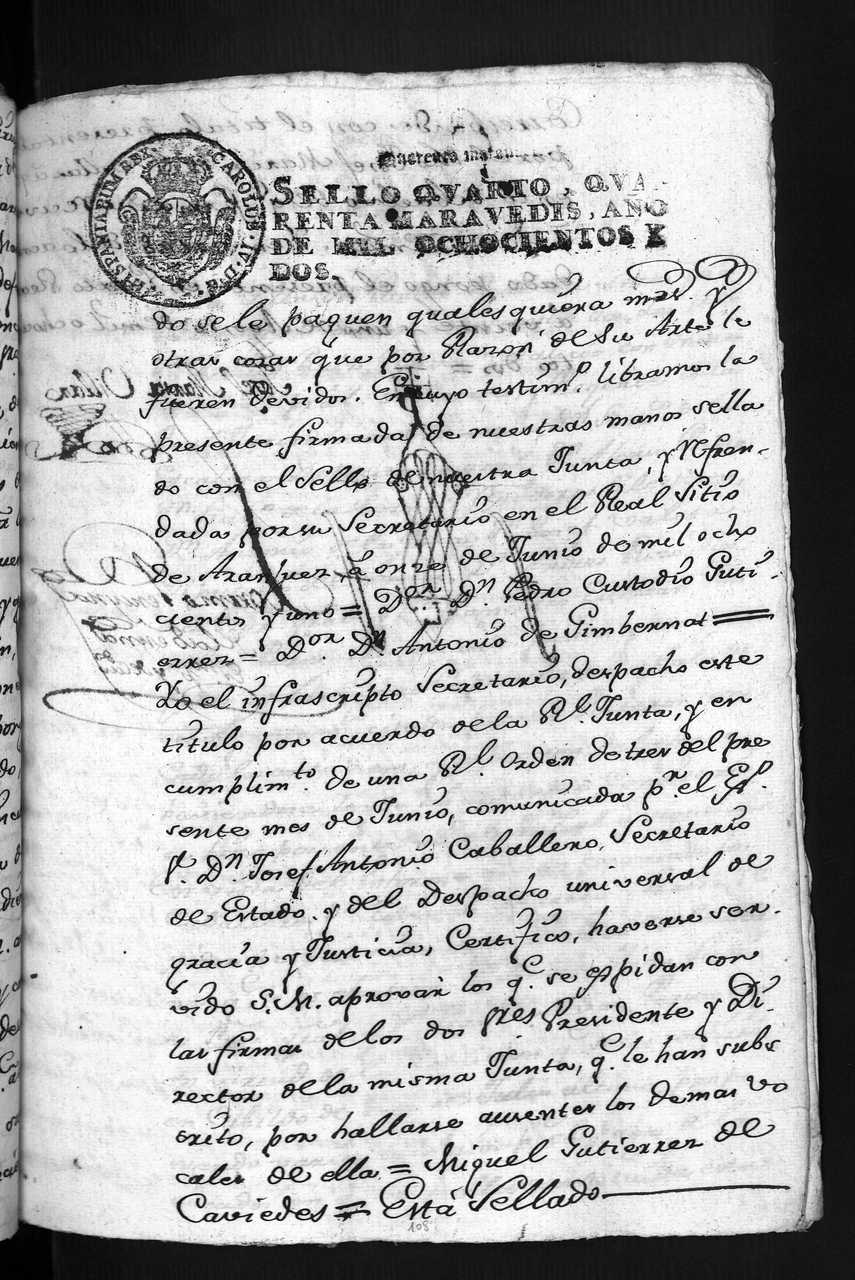 HISPANIARUM REX CAROLUS IV D G
SELLO QVARTO, QVA-
RENTA MARAVEDIS, AÑO
DE MIL OCHOCIENTOS Y
DOS.
do se le paguen qualesquiera mrs. y
otras cozas que por Razon de su Arte le
fueren devidos. En cuyo testim.o libramos la
presente firmada de nuestras manos sella
do con el Sello de nuestra Junta, y Refren-
dada por su Secretario en el Real Sitio
de Aranjuez, á onze de Junio de mil ocho
cientos y uno = D.or D.n Pedro Custodio Guti-
errez = D.or D.n Antonio de Gimbernat =
Yo el infrascripto Secretario, despacho este
titulo por acuerdo de la R.l Junta, y en
cumplim.to de una R.l orden de tres del pre
sente mes de Junio, comunicada p.r el Ex.o
S.r D.n Josef Antonio Caballero, Secretario
de Estado, y del Despacho universal de
gracia y Justicia, Certifico, haverse ser-
vido S.M. aprovar los q.e se espidan con
las firmas de los dos S.res Presidente y Di-
rector de la misma Junta, q.e le han subs
crito, por hallarse ausentes los demas vo
cales de ella = Miguel Gutierrez de
Caviedes = Está Sellado
108